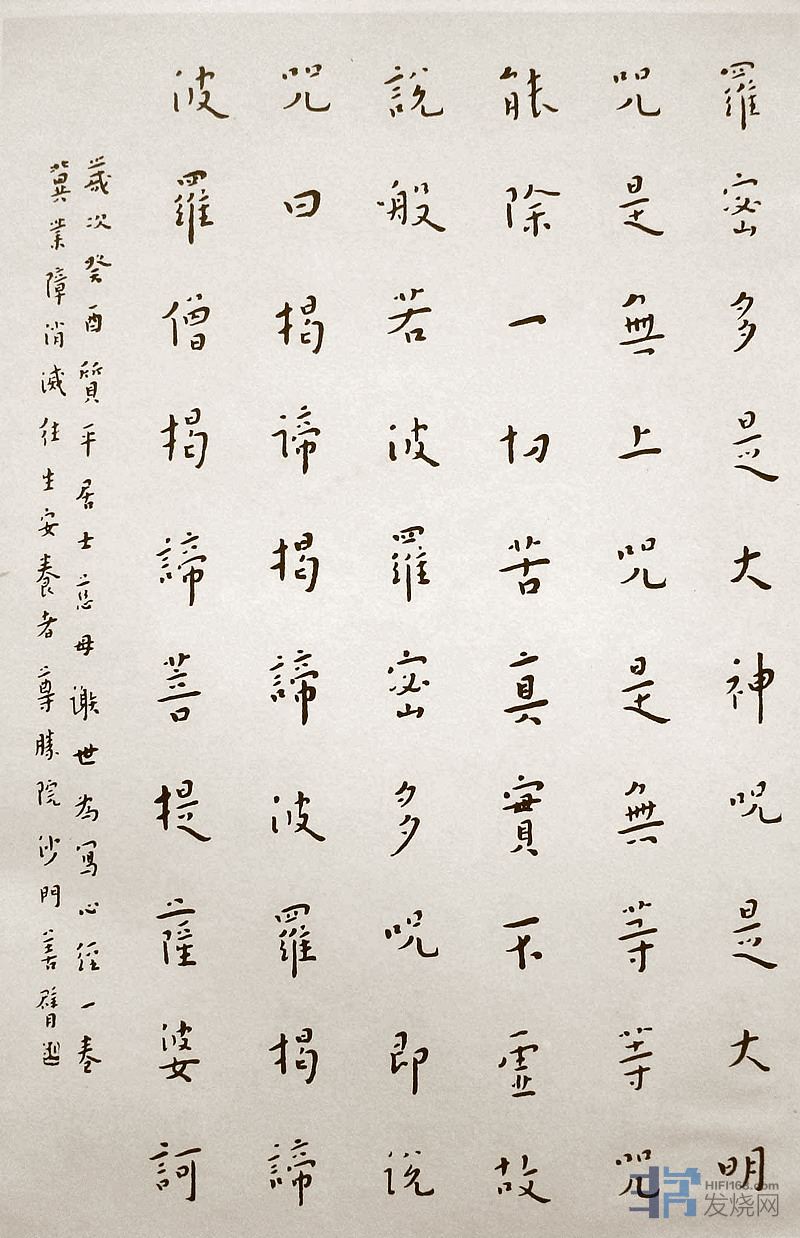 羅密多是大神咒是大明
咒是無上咒是無等等咒
能除一切苦真實不虛故
說般若波羅密多咒即說
咒曰揭諦揭諦波羅揭諦
波羅僧揭諦菩提薩婆訶
歲次癸酉質平居士慈母謝世為寫心經一卷
冀業障消滅往生安養者尊勝院沙門善臂
HIFI168.com
发烧网